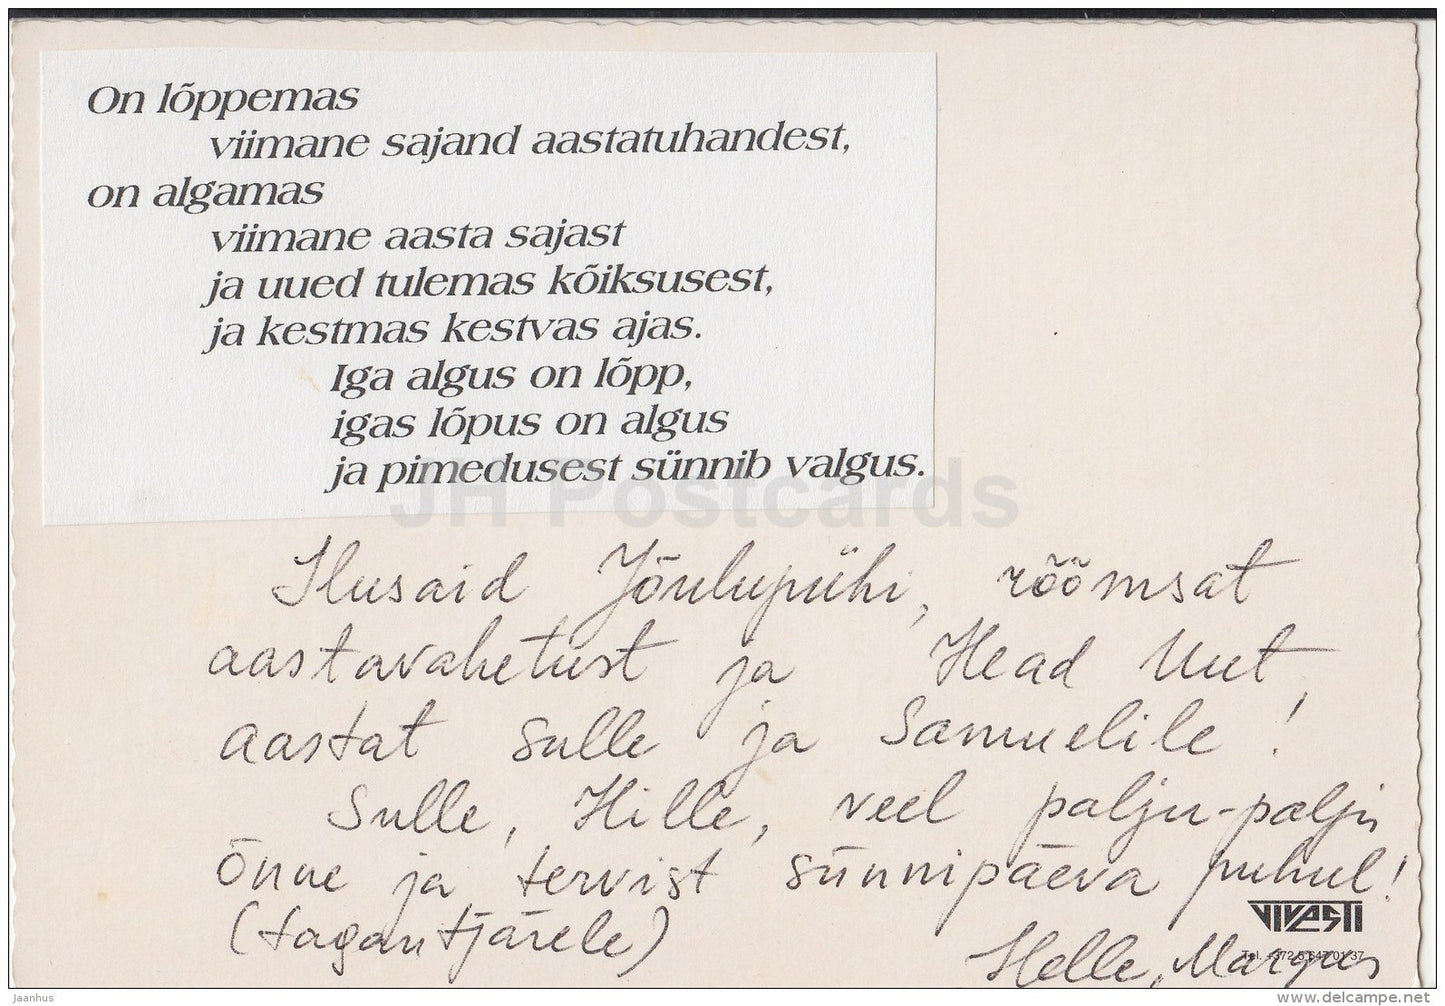 On lõppemas
viimane sajand aastatuhandest,
on algamas
viimane aasta sajast
ja uued tulemas kõiksusest,
ja kestmas kestvas ajas.
Iga algus on lõpp,
igas lõpus on algus
ja pimedusest sünnib valgus.
JH Postcards
Ilusaid Jõulupühi, rõõmsat
aastavahetust ja Head Uut
aastat Sulle ja Samuelile!
Sulle, Hille, veel palju-palju
õnne ja tervist sünnipäeva puhul!
(tagantjärele)
VIVASTI
Tel. +372 5 647 01 37
Helle, Margus
jaanhus
www.delcampe.net